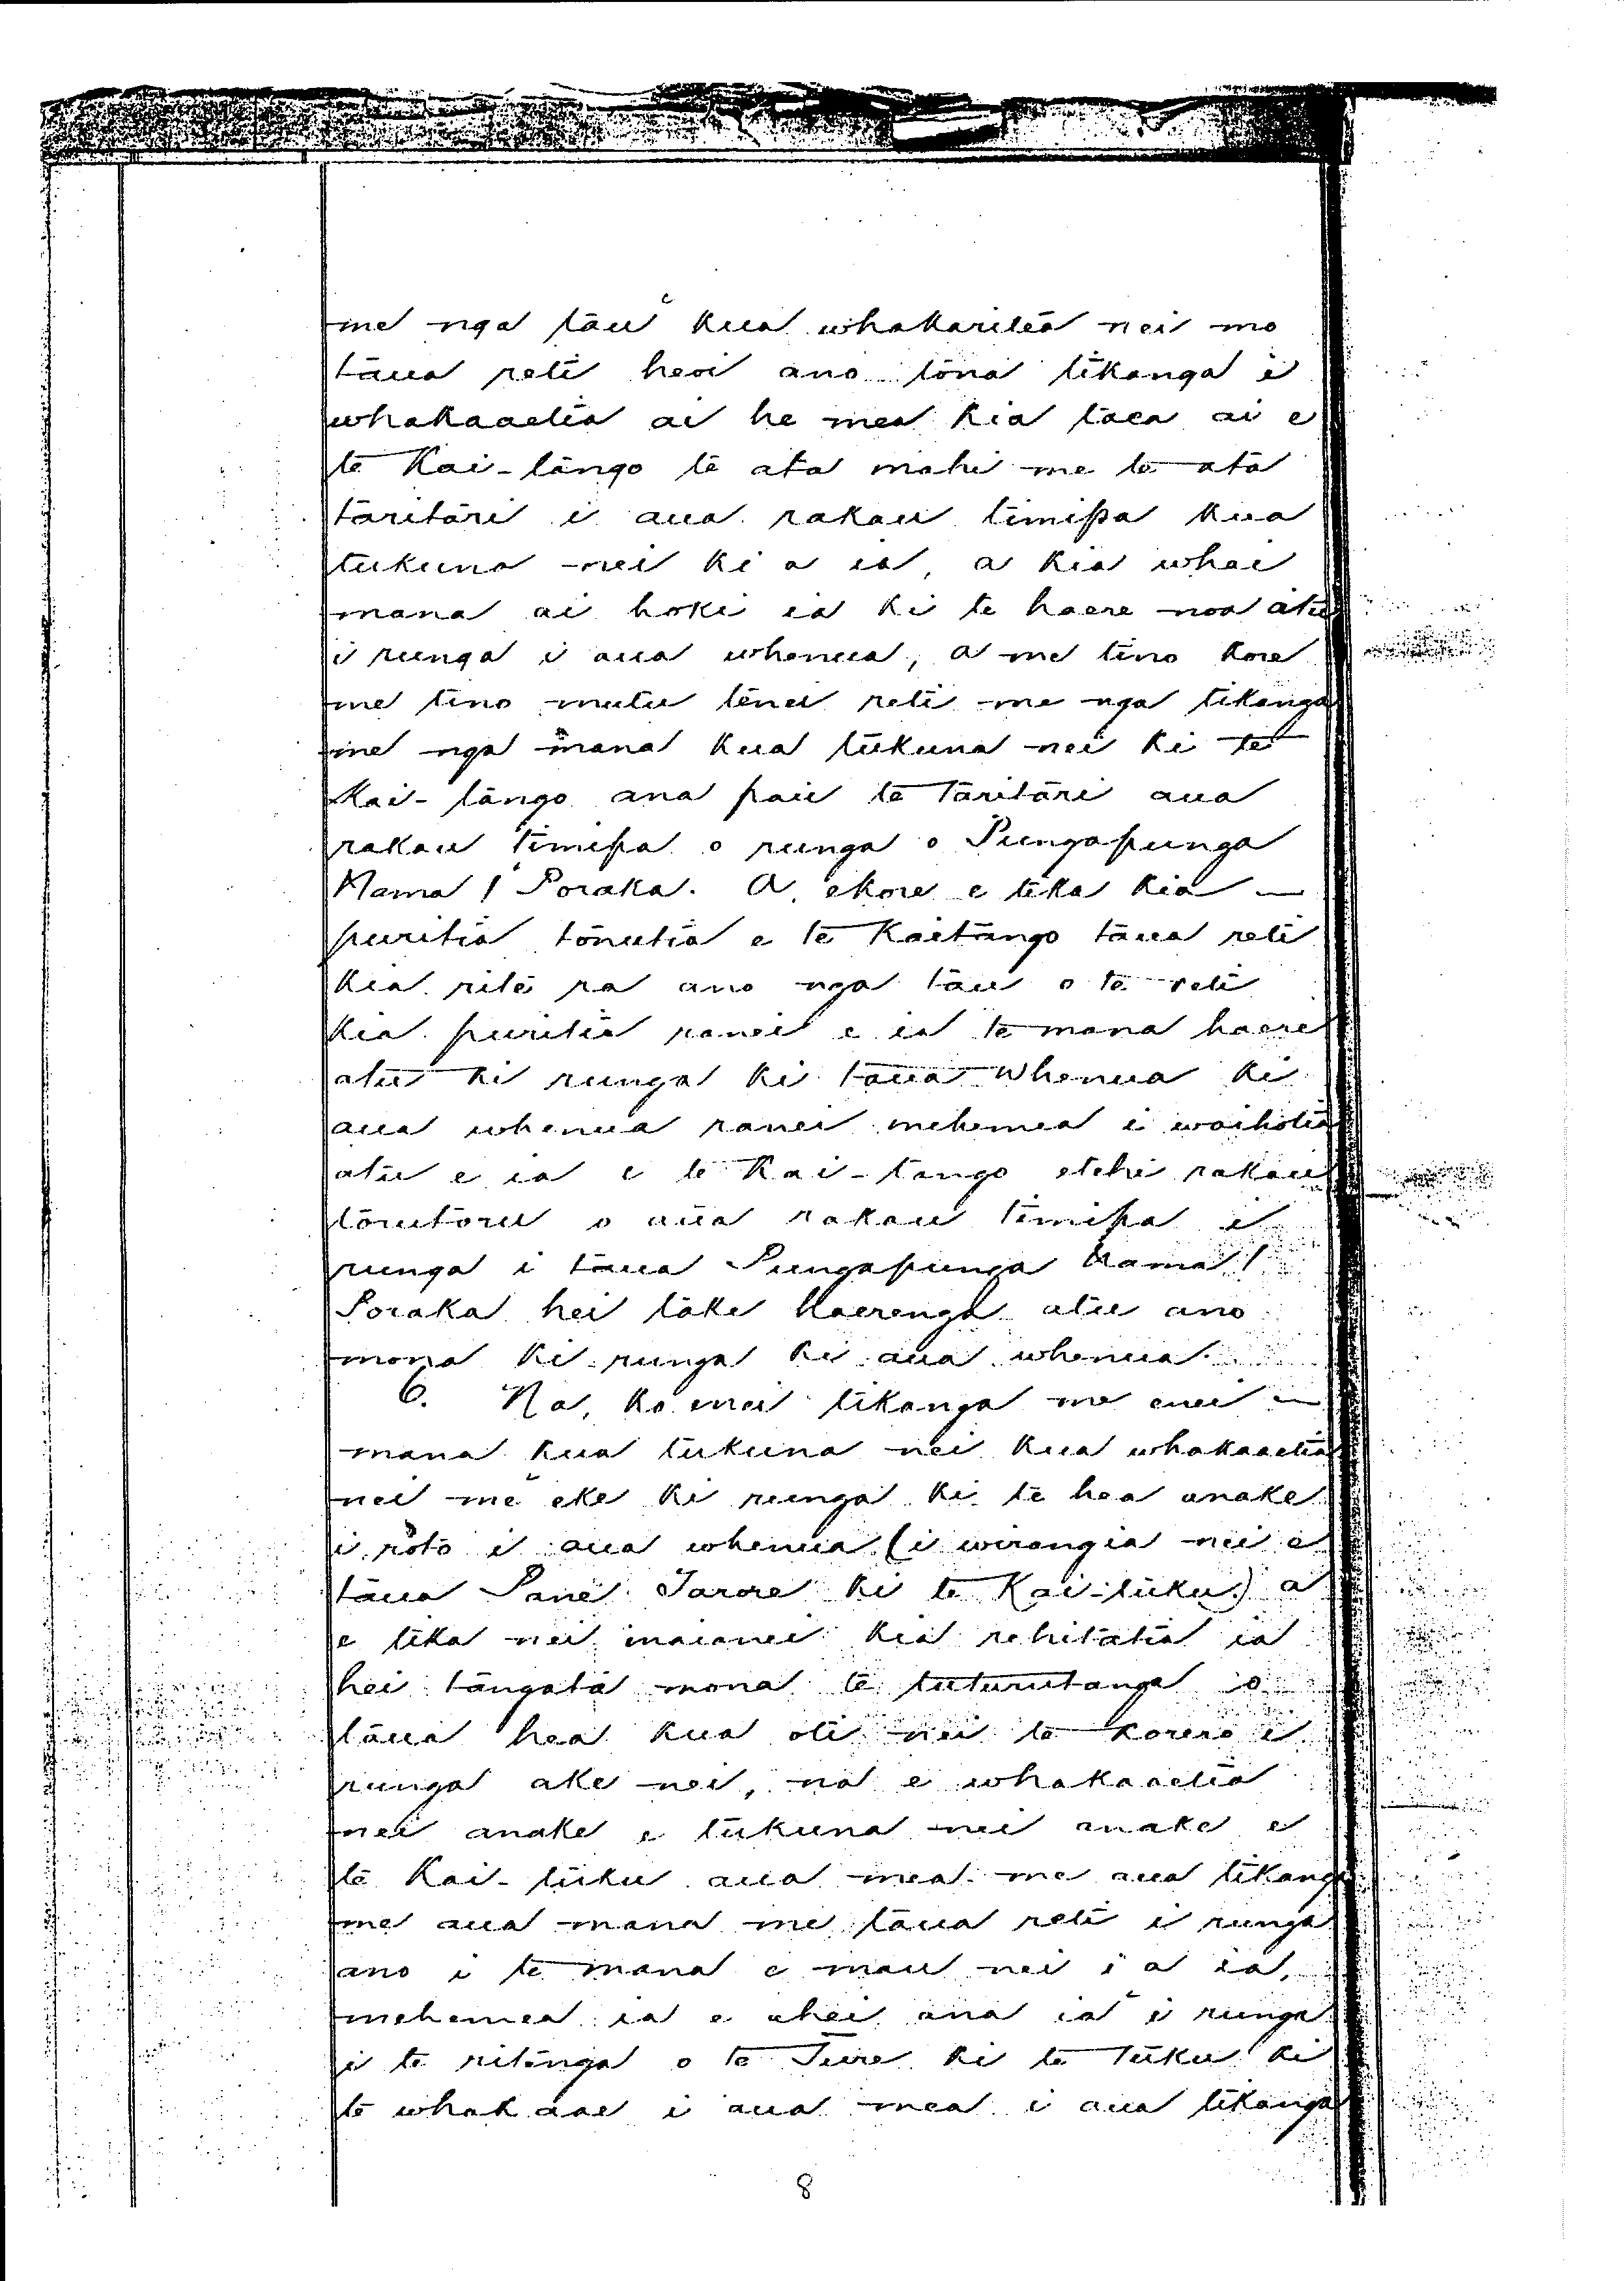 me nga tau kua whakaritea nei mo
taua reti heoi ano tona tikanga i
whakaaetia ai he mea kia taea ai e
te Kai-tango te ata mahi me te ata
taritari i aua rakau timipa kua
tukuna nei ki a ia, a kia whai
mana ai hoki ia ki te haere noa atu
i runga i aua whenua, a me tino kore
me tino mutu tenei reti me nga tikanga
me nga mana kua tukuna nei ki te
Kai-tango ana pau te taritari aua
rakau timipa o runga o Pungapunga
Nama 1 Poraka. A, ekore e tika kia —
puritia tonutia e te Kaitango taua reti
kia rite ra ano nga tau o te reti
kia puritia ranei e ia te mana haere
atu ki runga ki taua whenua ki
aua whenua ranei mehemea i waihotia
atu e ia e te Kai-tango etehi rakau
torutoru o aua rakau timipa i
runga i taua Pungapunga Nama 1
Poraka hei take haerenga atu ano
mona ki runga ki aua whenua.
6. Na, ko enei tikanga me enei —
mana kua tukuna nei kua whakaaetia
nei me eke ki runga ki te hea anake
i roto i aua whenua (i wirangia nei e
taua Pane Tarore ki te Kai-tuku) a
e tika nei inaianei kia rehitatia ia
hei tangata mona te tuturutanga o
taua hea kua oti nei te korero i
runga ake nei, na e whakaaetia
nei anake e tukuna nei anake e
te Kai-tuku aua mea me aua tikanga
me aua mana me taua reti i runga
ano i te mana e mau nei i a ia,
mehemea ia e ahei ana ia i runga
i te ritenga o te Ture ki te tuku ki
te whakaae i aua mea i aua tikanga
8